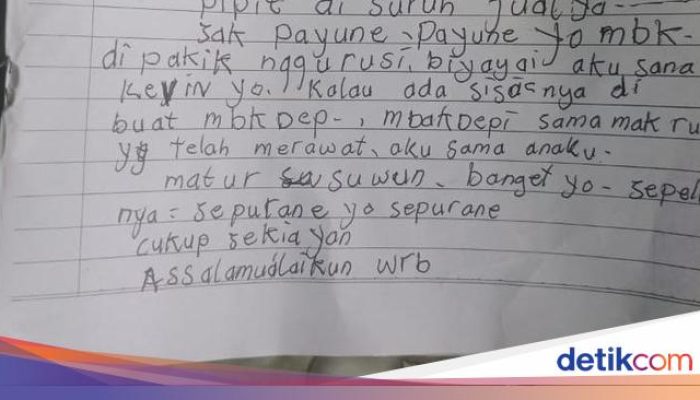 pipie di suruh jualya
sak payune, payune yo mbk.
di pakik nggurusi, biyayai aku sama
Kevin yo. Kalau ada sisaanya di
buat mbk Dep-, mbak Depi sama mak ru
yg telah merawat, aku sama anaku.
matur suwun, banget yo - sepel
nya = sepurane yo sepurane
cukup sekia yan
Assalamualaikun wrb
detikcom